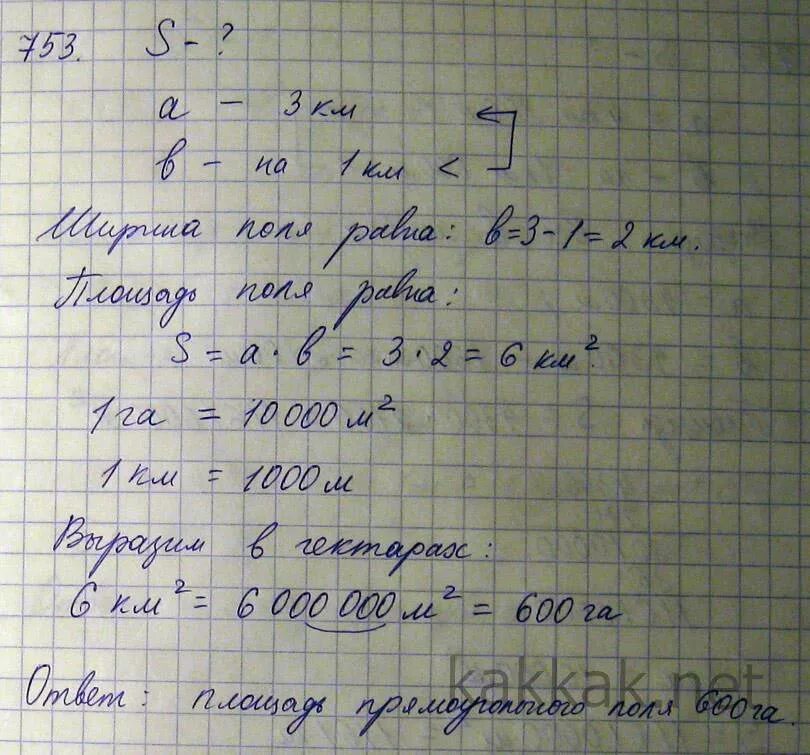 753. S - ?
a - 3 км
в - на 1 км <
Ширина поля равна: в=3-1=2 км.
Площадь поля равна:
S = a · в = 3 · 2 = 6 км².
1 га = 10 000 м²
1 км = 1000 м
Выразим в гектарах:
6 км² = 6 000 000 м² = 600 га
kakkak.net
Ответ: площадь прямоугольного поля 600 га.